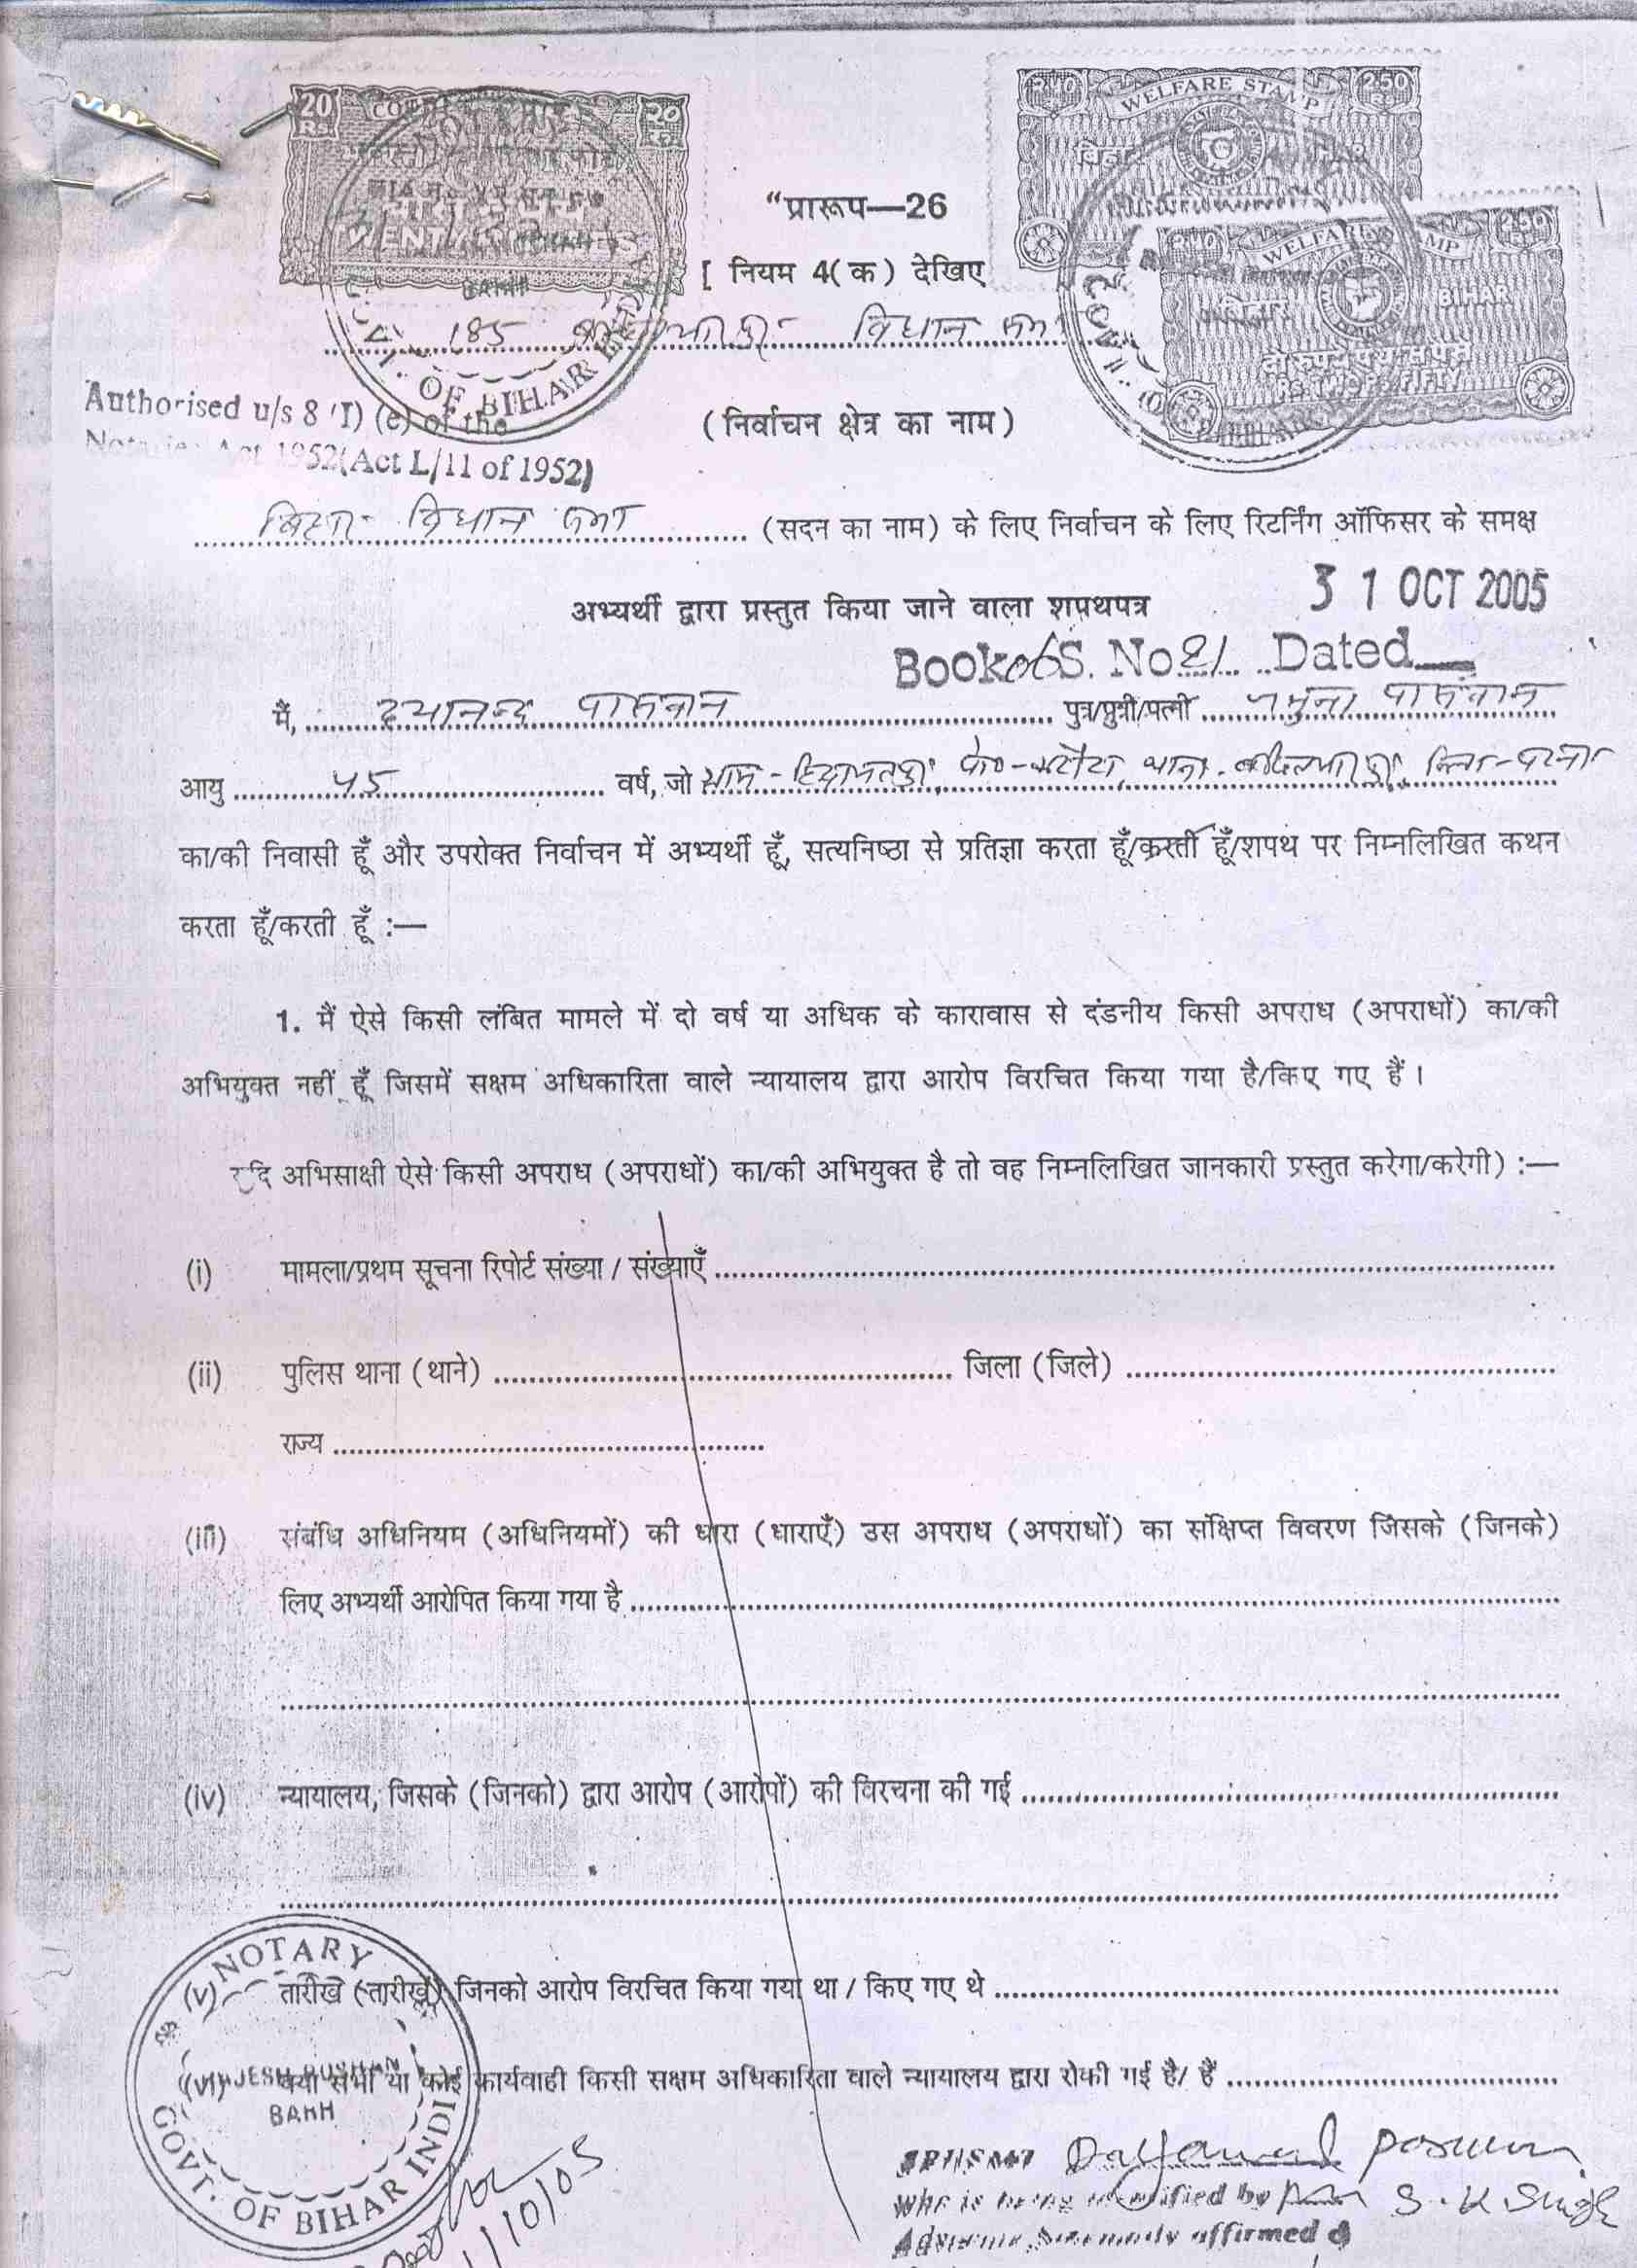 20 Rs.
WELFARE STAMP 2.50
बिहार
WELFARE STAMP 2.50
बिहार BIHAR
दो रुपये पचास पैसे
RS. TWO PS. FIFTY
“प्रारूप—26
[ नियम 4( क ) देखिए
185 विधान सभा
GOVT. OF BIHAR
Authorised u/s 8 (I) (e) of the
Notaries Act 1952(Act L/11 of 1952)
( निर्वाचन क्षेत्र का नाम )
बिहार विधान सभा (सदन का नाम) के लिए निर्वाचन के लिए रिटर्निंग ऑफिसर के समक्ष
अभ्यर्थी द्वारा प्रस्तुत किया जाने वाला शपथपत्र
3 1 OCT 2005
Book 06 S. No 21 Dated
मैं, दयानन्द पासवान पुत्र/पुत्री/पत्नी पासवान
आयु 45 वर्ष, जो ग्राम - थाना - जिला - पटना
का/की निवासी हूँ और उपरोक्त निर्वाचन में अभ्यर्थी हूँ, सत्यनिष्ठा से प्रतिज्ञा करता हूँ/करती हूँ/शपथ पर निम्नलिखित कथन
करता हूँ/करती हूँ :—
1. मैं ऐसे किसी लंबित मामले में दो वर्ष या अधिक के कारावास से दंडनीय किसी अपराध (अपराधों) का/की
अभियुक्त नहीं हूँ जिसमें सक्षम अधिकारिता वाले न्यायालय द्वारा आरोप विरचित किया गया है/किए गए हैं ।
यदि अभिसाक्षी ऐसे किसी अपराध (अपराधों) का/की अभियुक्त है तो वह निम्नलिखित जानकारी प्रस्तुत करेगा/करेगी) :—
(i) मामला/प्रथम सूचना रिपोर्ट संख्या / संख्याएँ
(ii) पुलिस थाना (थाने) जिला (जिले)
राज्य
(iii) संबंधि अधिनियम (अधिनियमों) की धारा (धाराएँ) उस अपराध (अपराधों) का संक्षिप्त विवरण जिसके (जिनके)
लिए अभ्यर्थी आरोपित किया गया है
(iv) न्यायालय, जिसके (जिनको) द्वारा आरोप (आरोपों) की विरचना की गई
(v) तारीख (तारीखें) जिनको आरोप विरचित किया गया था / किए गए थे
(vi) क्या सभी या कोई कार्यवाही किसी सक्षम अधिकारिता वाले न्यायालय द्वारा रोकी गई है/ हैं
NOTARY
BARH
GOVT. OF BIHAR INDIA
Dayanand Paswan
who is being identified by S. K Singh
Advocate Solemnly affirmed